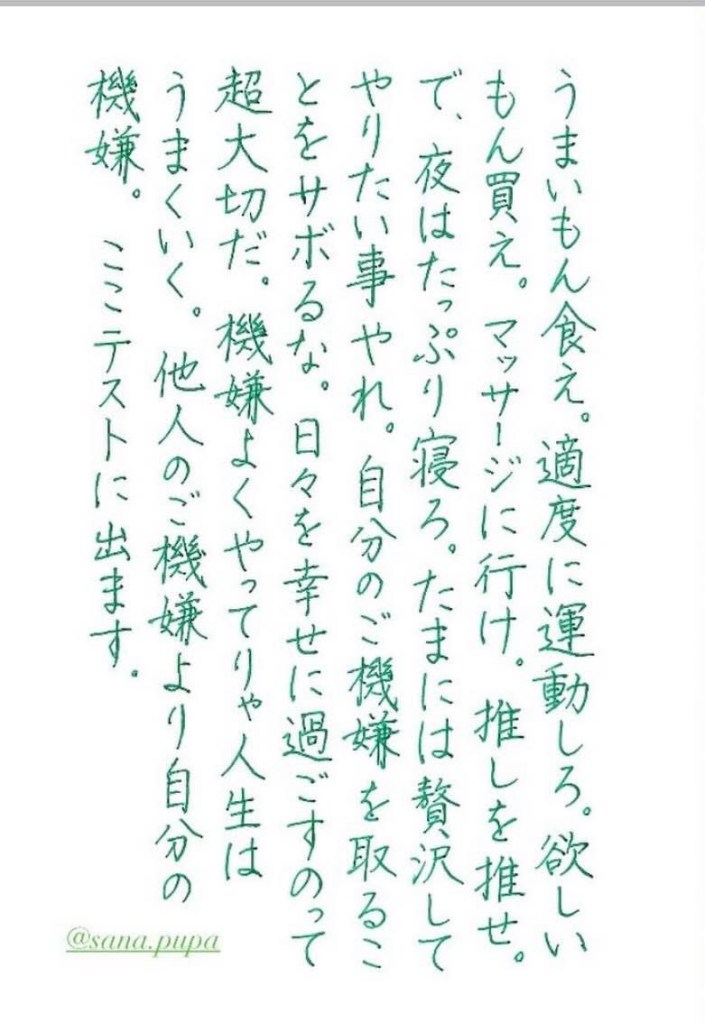 うまいもん食え。適度に運動しろ。欲しい
もん買え。マッサージに行け。推しを推せ。
で、夜はたっぷり寝ろ。たまには贅沢して
やりたい事やれ。自分のご機嫌を取るこ
とをサボるな。日々を幸せに過ごすのって
超大切だ。機嫌よくやってりゃ人生は
うまくいく。他人のご機嫌より自分の
機嫌。ここテストに出ます。
@sana.pupa